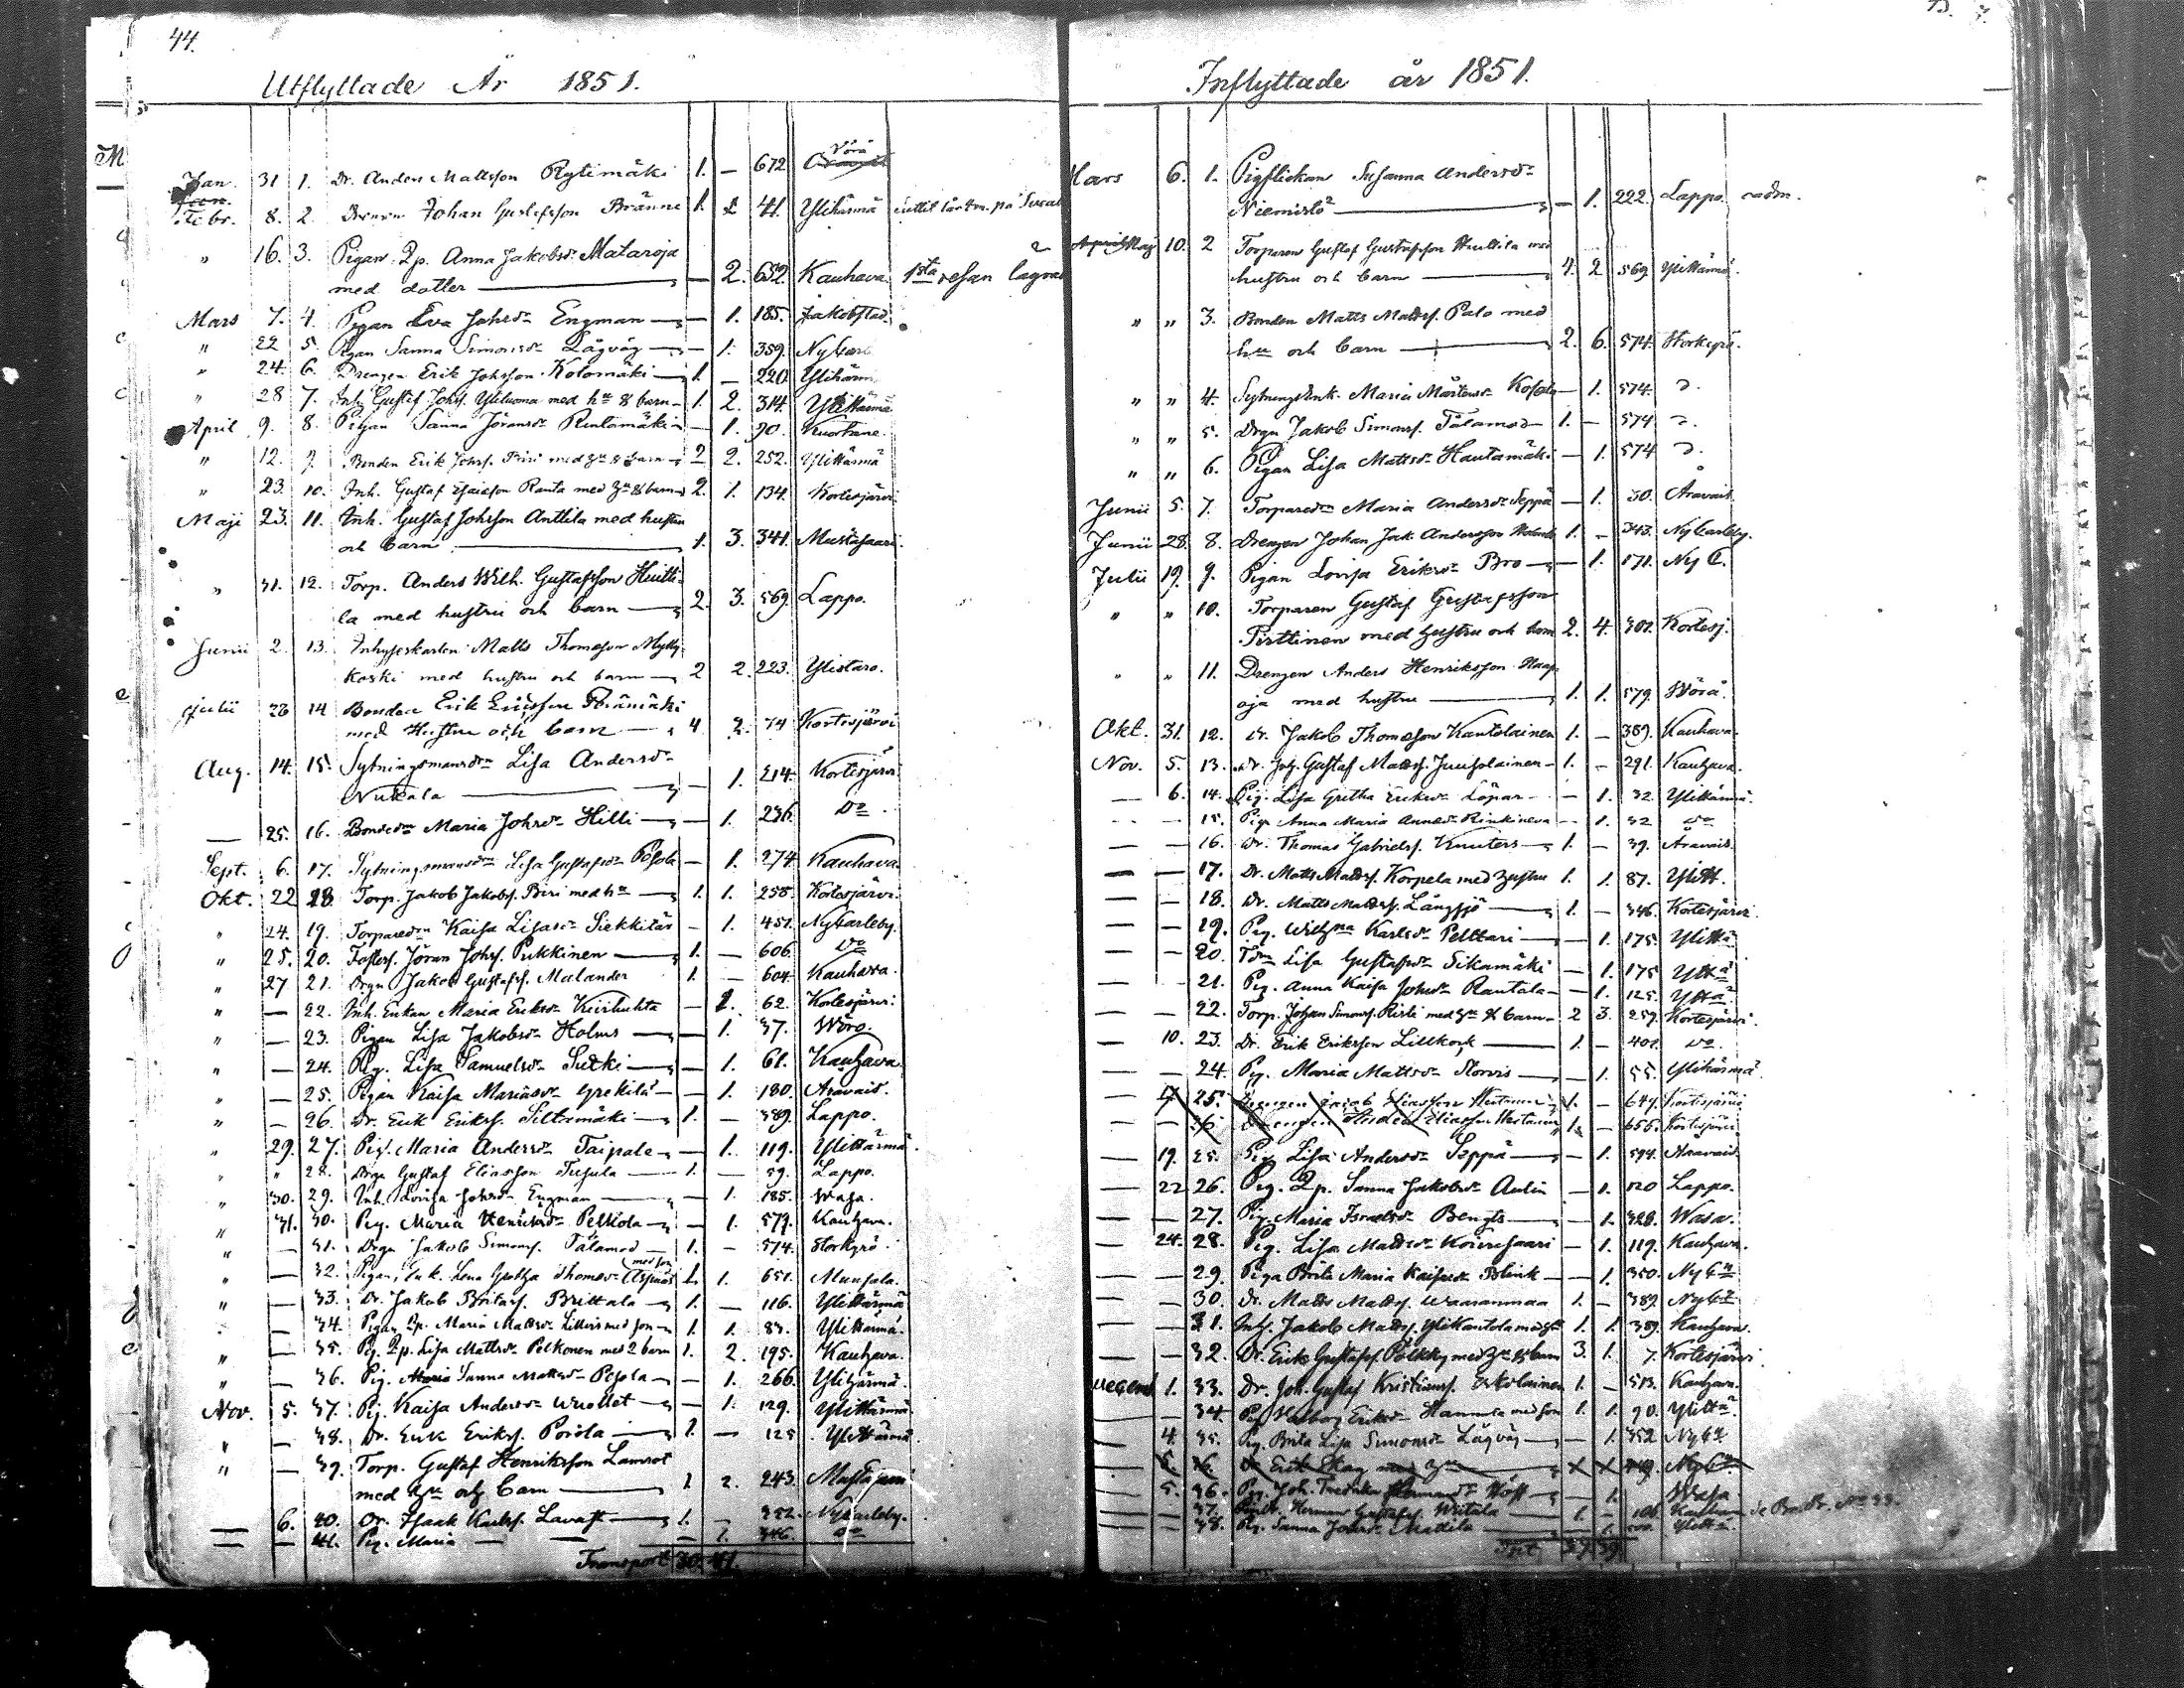 44.
Utflyttade År 1851.
Jan. 31 1. Dr. Anders Mattsson Rytimäki 1. — 672 Vörå
Febr. 8. 2. Johan Gustafsson Bränne 1. 41. Ylihärmä
" 16. 3. Pigan Qp. Anna Jakobsdr Mataroja
med dotter — 2. 652. Kauhava 1sta resan
Mars 7. 4. Pigan Eva Johsdr Engman — 1. 185. Jakobstad.
" 22 5. Pigan Sanna Simonsdr Lågväg — 1. 359. NyCarl
" 24. 6. Drengen Erik Johsson Kolomäki 1. — 220. Ylihärm
" 28 7. Inh. Gustaf Johss. Yliluoma med hu & barn 1. 2. 314. Ylihärmä
April 9. 8. Pigan Sanna Jöransdr Rintamäki — 1. 90. Kuortane.
" 12. 9. Bonden Erik Johss. Piri med hu & barn 2 2. 252. Ylihärmä
" 23 10. Inh. Gustaf Esaiasson Ranta med hu & barn 2. 1. 134. Kortesjärvi
Maji 23. 11. Inh. Gustaf Johsson Anttila med hustru
och barn 1. 3. 341. Mustasaari.
" 31. 12. Torp. Anders Wilh. Gustafsson Huitti-
la med hustru och barn 2. 3. 569. Lappo.
Junii 2. 13. Inhyseskarlen Matts Thomasson Mylly-
koski med hustru och barn 2 2. 223. Ylistaro.
Julii 28 14 Bonden Erik Ericsson
med Hustru och barn 4 2. 74 Kortesjärvi
Aug. 14. 15. Sytningsmansdr Lisa Andersdr
Nukala — 1. 214. Kortesjärvi
— 25. 16. Bondedr Maria Johsdr Hilli — 1. 236. Do.
Sept. 6. 17. Sytningsmansdr Lisa Gustafsdr Pesola — 1. 274 Kauhava.
Okt. 22 18. Torp. Jakob Jakobss. Piri med hu 1. 1. 258. Kortesjärvi.
" 24. 19. Torparedr Kaisa Lisasdr Siekkitär — 1. 451. NyCarleby.
" 25. 20. Fosters. Jöran Johss. Pukkinen 1. — 606. Do
" 27 21. Drgn Jakob Gustafss. Malander 1. — 604. Kauhava.
" — 22. Inh. Enkan Maria Eriksdr Kiviluhta — 1. 62. Kortesjärvi.
" — 23. Pigan Lisa Jakobsdr Holms — 1. 37. Wörå.
" — 24. Pig. Lisa Samuelsdr Sutki — 1. 61. Kauhava
" — 25. Pigan Kaisa Mariasdr Grekilä — 1. 180. Aravais.
" — 26. Dr. Erik Erikss. Siltamäki 1. — 389. Lappo.
" 29. 27. Pig. Maria Andersdr Taipale — 1. 119. Ylihärmä.
" " 28. Drgn Gustaf Eliasson Tusula 1. — 59. Lappo.
" 30. 29. Inh. Lovisa Johsdr Engman — 1. 185. Wasa.
" 31. 30. Pig. Maria Henriksdr Pelkola — 1. 579. Kauhava.
" — 31. Drgn Jakob Simonss. Tålamod 1. — 574. Storkyrö.
" — 32. Pigan, Enk. Lena Gretha Thomasdr Aspnäs med son 1. 1. 651. Munsala.
" — 33. Dr. Jakob Britass. Brittala 1. — 116. Ylihärmä
— 34. Pigan Qp. Maria Mattsdr med son 1. 1. 83. Ylihärmä.
" — 35. Pig. Qp. Lisa Mattsdr Pelkonen med 2 barn 1. 2. 195. Kauhava.
" — 36. Pig. Maria Sanna Mattsdr Pesola — 1. 266. Ylihärmä.
Nov. 5. 37. Pig. Kaisa Andersdr — 1. 129. Ylihärmä.
" — 38. Dr. Erik Erikss. Poirola 1. — 125 Ylihärmä.
" — 39. Torp. Gustaf Henriksson
med hu och barn 1 2. 243. Mustasaari
— 6. 40. Dr. Isaak Karlss. Lavast 1. — 352. NyCarleby.
— — 41. Pig. Maria — — 1. 346. Do
Transport 30. 41.
Inflyttade år 1851.
Mars 6. 1. Pigflickan Susanna Andersdr
Niemistö — 1. 222. Lappo.
Maj 10. 2 Torparen Gustaf Gustafsson Huitila med
hustru och barn 4. 2 569. Ylihärmä.
" " 3. Bonden Matts Mattss. Palo med
hu och barn 2. 6. 574. Storkyrö.
" " 4. Sytningsenk. Maria Mårtensdr — 1. 574. D.
" " 5. Drgn Jakob Simonss. Tålamod 1. — 574 D.
" " 6. Pigan Lisa Mattsdr Hautamäki — 1. 574 D.
Junii 5. 7. Torparedr Maria Andersdr Seppä — 1. 30. Aravais.
Junii 28. 8. Drengen Johan Jak. Andersson 1. — 343. NyCarleby.
Julii 19. 9. Pigan Lovisa Eriksdr Bro — 1. 171. Ny C.
" " 10. Torparen Gustaf Gustafsson
Pirttinen med hustru och barn 2. 4. 301. Kortesj.
" " 11. Drengen Anders Henriksson Haap-
oja med hustru 1. 1. 579. Wörå.
Okt. 31. 12. Dr. Jakob Thomasson Kantolainen 1. — 389. Kauhava.
Nov. 5. 13. Dr. Joh. Gustaf Mattss. Juusolainen 1. — 291. Kauhava.
— 6. 14. Pig. Lisa Gretha Eriksdr Löpar — 1. 32. Ylihärmä.
— 15. Piga Anna Maria Annasdr Rinkineva — 1. 32 do
— — 16. Dr. Thomas Gabrielss. Knuters 1. — 39. Aravais.
— — 17. Dr. Matts Mattss. Korpela med hustru 1. 1. 87. Ylih.
— — 18. Dr. Matts Mattss. Långsjö 1. — 346. Kortesjärvi.
— — 19. Pig. Wilhna Karlsdr Pelttari — 1. 175. Ylihä
— — 20. Lisa Gustafsdr Sikamäki — 1. 175 Ylhä
— 21. Pig. Anna Kaisa Johsdr Rautala — 1. 125. Ylhä.
— — 22. Torp. Johan Simonss. Risti med hu & barn 2 3. 259. Kortesjärvi.
— 10. 23. Dr. Erik Eriksson Lillkock 1. — 401. Do.
— 24. Pig. Maria Mattsdr Storvis — 1. 55. Ylihärmä.
— 17 25. Drengen Jacob Eliasson 1. — 647. Kortesjärvi
— — 26. Drengen Eliasson 1. — 656. Kortesjärvi
— 19. 25. Pig. Lisa Andersdr Seppä — 1. 594. Aravais
— 22 26. Pig. Qp. Sanna Jakobsdr Aulin — 1. 120 Lappo.
— — 27. Pig. Maria Israelsdr Bengts — 1. 328. Wasa.
— 24. 28. Pig. Lisa Mattsdr Koivusaari — 1. 119. Kauhava.
— — 29. Piga Brita Maria Kaisasdr Blink — 1. 350. Ny
— 30. Dr. Matts Mattss. Waaranmaa 1. — 389.
— — 31. Inh. Jakob Mattss. Ylikantola med hu 1. 1. 389. Kauhava.
— — 32. Dr. Erik Gustafss. Pölkky med hu & barn 3. 1. 7. Kortesjärvi.
1. 33. Dr. Joh. Gustaf Kristianss. Erkolainen 1. — 513. Kauhava.
— — 34. Pig. Walborg Eriksdr Hannula med son 1. 1. 90. Ylihä.
— 4. 35. Pig. Brita Lisa Simonsdr Lågväg — 1. 352
— 5. 36. Dr. Erik
— 5. 36. Pig. Joh. Fredrika — 1. Wasa.
— 37. Herman Gustafss. 1. — 106 Kauhava
— 38. Pig. Sanna Johsdr Mattila — 1.
Trpt 37 39